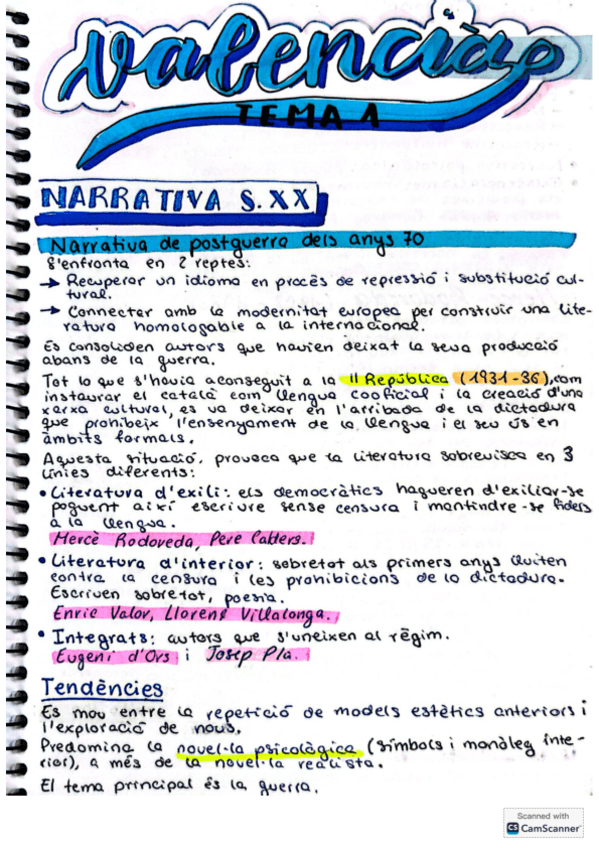 Valencià
TEMA 1
NARRATIVA S.XX
Narrativa de postguerra dels anys 70
S'enfronta en 2 reptes:
→ Recuperar un idioma en procés de repressió i substitució cul-
tural.
→ Connectar amb la modernitat europea per construir una lite-
ratura homologable a la internacional.
Es consoliden autors que havien deixat la seua producció
abans de la guerra.
Tot lo que s'havia aconseguit a la II República (1931-36), com
instaurar el català com llengua cooficial i la creació d'una
xarxa cultural, es va deixar en l'arribada de la dictadura
que prohibeix l'ensenyament de la llengua i el seu ús en
àmbits formals.
Aquesta situació, provoca que la literatura sobrevisca en 3
línies diferents:
• Literatura d'exili: els democràtics hagueren d'exiliar-se
poguent així escriure sense censura i mantindre-se fidels
a la llengua.
Mercè Rodoreda, Pere Calders.
• Literatura d'interior: sobretot als primers anys lluiten
contra la censura i les prohibicions de la dictadura.
Escriven sobretot, poesia.
Enric Valor, Llorenç Villalonga.
• Integrats: autors que s'uneixen al règim.
Eugeni d'Ors i Josep Pla.
Tendències
Es mou entre la repetició de models estètics anteriors i
l'exploració de nous.
Predomina la novel·la psicològica (símbols i monòleg inte-
rior), a més de la novel·la realista.
El tema principal és la guerra.
Scanned with
CS CamScanner